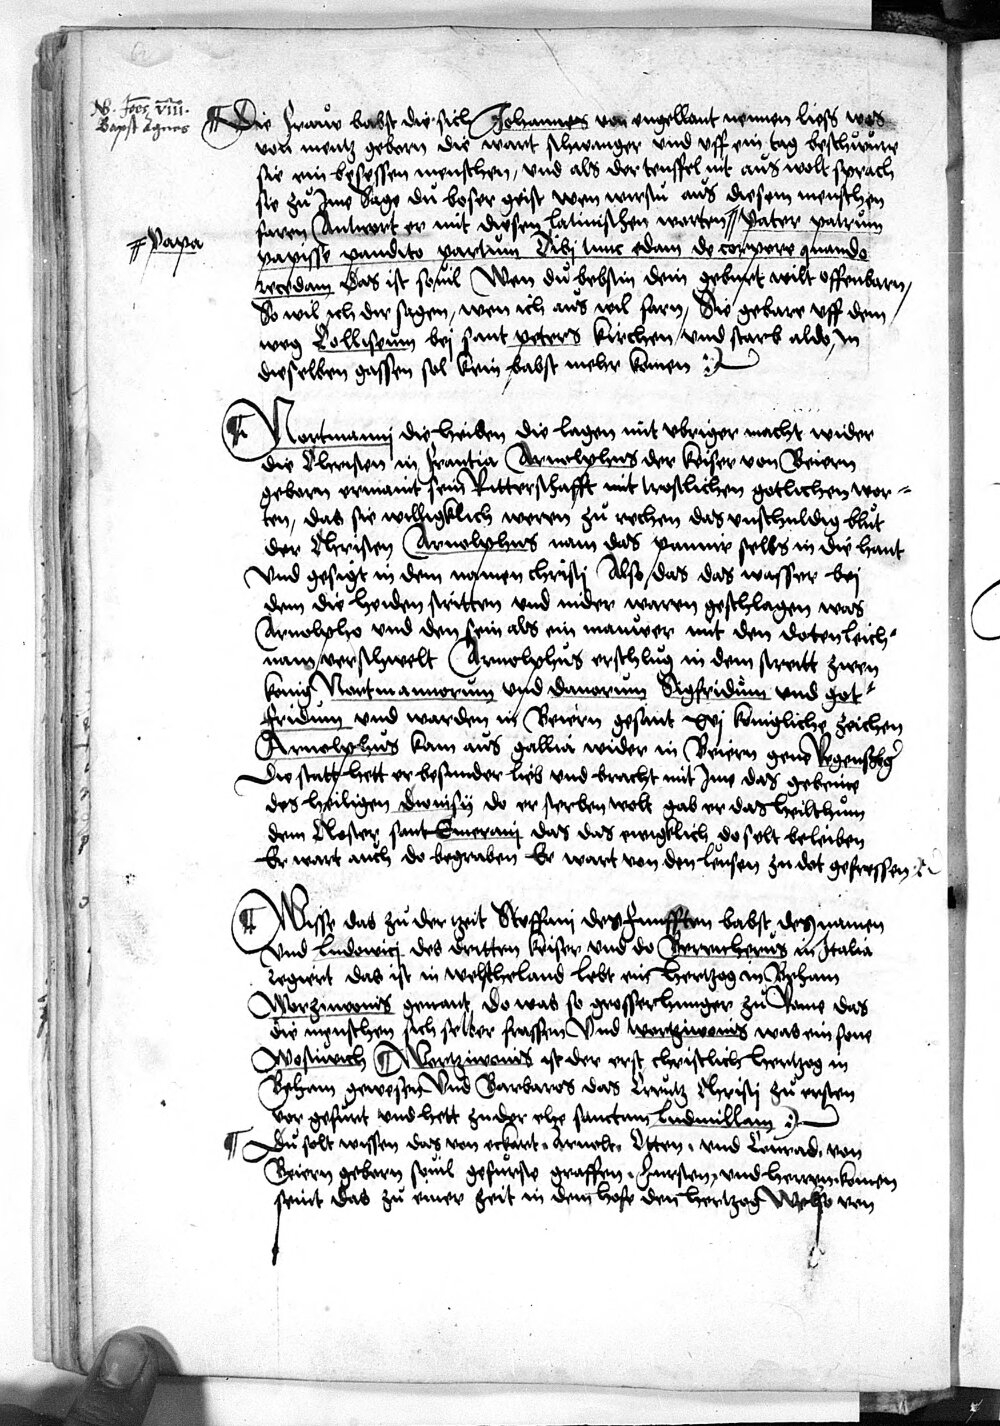 NB. Joes VIII.
Bapst Agnes
Die fraw babst die sich Johannes von engellant nennen liess was
von mentz geborn die wart schwanger vnd vff ein tag beschwure
sie ein besessen menschen, vnd als der teuffel nit aus wolt sprach
sie zu Jme Sage du boser geist wen wirstu aus diesem menschen
faren Antwort er mit diesen latinischen worten Pater patrum
Papa
papisse pandito partum Tibi tunc edam de corpore quando
recedam Das ist souil Wen du bebstin dein geburt wilt offenbarn,
So wil ich dir sagen, wen ich aus wil farn, Sie gebare vff dem
weg Colliseum bej sant peters kirchen, vnd starb aldo, Jn
dieselben gassen sol kein babst mehr komen
Nortmannj die heiden die lagen mit vbriger macht wider
die Christen in frantia Arnolphus der keiser von Beiern
geborn ermant sein Ritterschafft mit trostlichen gotlichen wor=
ten, das sie willigklich weren zu rechen das vnschuldig blut
der Christen Arnolphus nam das pannir selbs in die hant
vnd gesigt in dem namen christj Also, das das wasser bej
dem die heiden stritten vnd nider waren geschlagen was
Arnolpho vnd den sein als ein mauwer mit den doten leich=
nam verschwelt Arnolphus erschlug in dem streitt zwen
konig Nortmannorum vnd danorum Sigfridum vnd got=
fridum vnd warden in Beiern gesant xvj konigliche zeichen
Arnolphus kam aus gallia wider in Beiern gene Regenspurg
Die statt hett er besunder lieb vnd bracht mit Jme das gebeine
des heiligen dionisij do er sterben wolt gab er das heilthum
dem Closter sant Emeranj das das ewigklich do solt beleiben
Er wart auch do begraben Er wart von den leusen zu dot gefressen
Wisse das zu der zeit Steffani des funfften babst des namen
vnd Ludowicj des dritten keiser vnd do Berrengerius in Italia
regiert das ist in welscheland lebt ein hertzog in Beham
Worziwonis genant, Do was so grosser hunger zu Rome das
die menschen sich selber frassen Vnd wortziwonis was ein sone
Wostiwich Wortziwonis ist der erst christlich hertzog in
Beham gewesen Vnd Barbaros das Creutz Christj zu ersten
vor gefurt vnd hett zu der ehe sanctam Ludmillam
Du solt wissen das von eckart. Arnolt. Otten. vnd Conrad. von
Beiern geborn souil gefurste graffen. Fursten, vnd herren. komen
seint das zu einer zeit in dem hofe den hertzog Welffo von